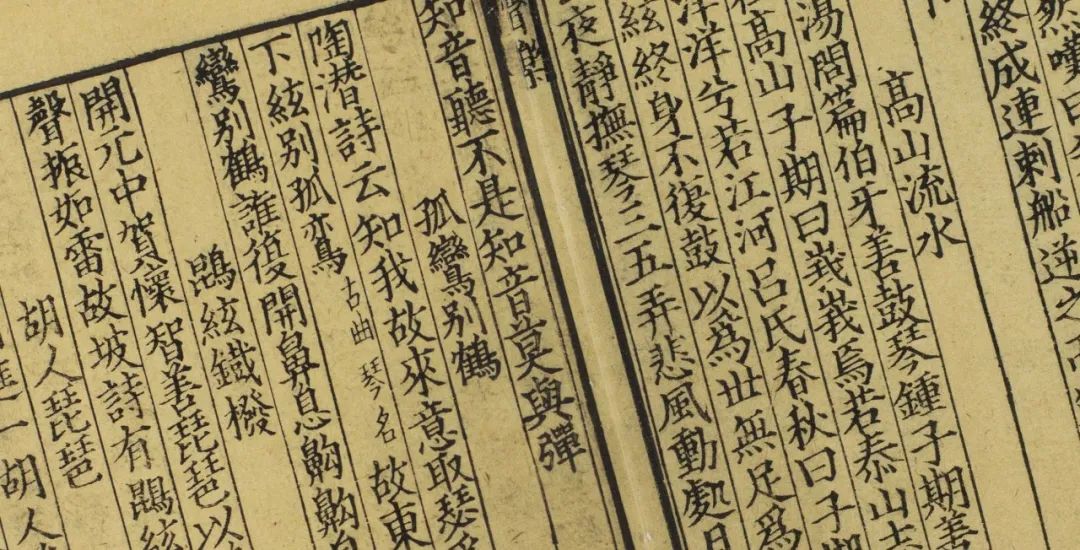 然嘆曰
終成連刺船逆之而
高山流水
湯問篇伯牙善鼓琴鍾子期善
高山子期曰峩峩焉若泰山志
洋洋兮若江河呂氏春秋曰子期
絃終身不復鼓以爲世無足爲
夜靜撫琴三五弄悲風動處月
知音聽不是知音莫與彈
孤鸞別鶴
陶潛詩云知我故來意取瑟爲
下絃別孤鸞古曲琴名故東
鸞別鶴誰復開鼻息齁齁自
鵾絃鐵撥
開元中賀懷智善琵琶以
聲振如雷故坡詩有鵾絃
胡人琵琶
一胡人